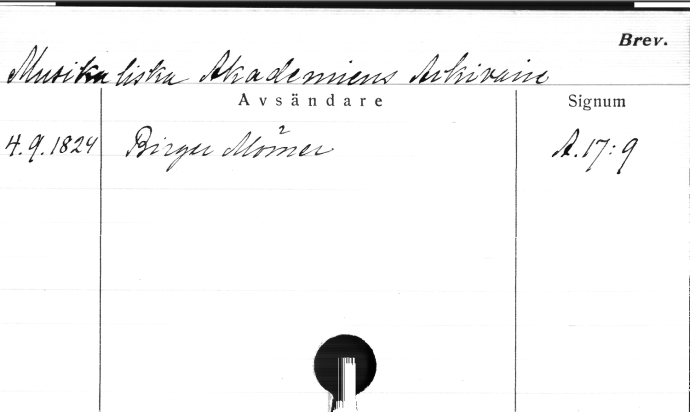 Brev.
Musikaliska Akademiens Arkivarie
Avsändare Signum
4.9.1824 Birger Mörner A.17:9